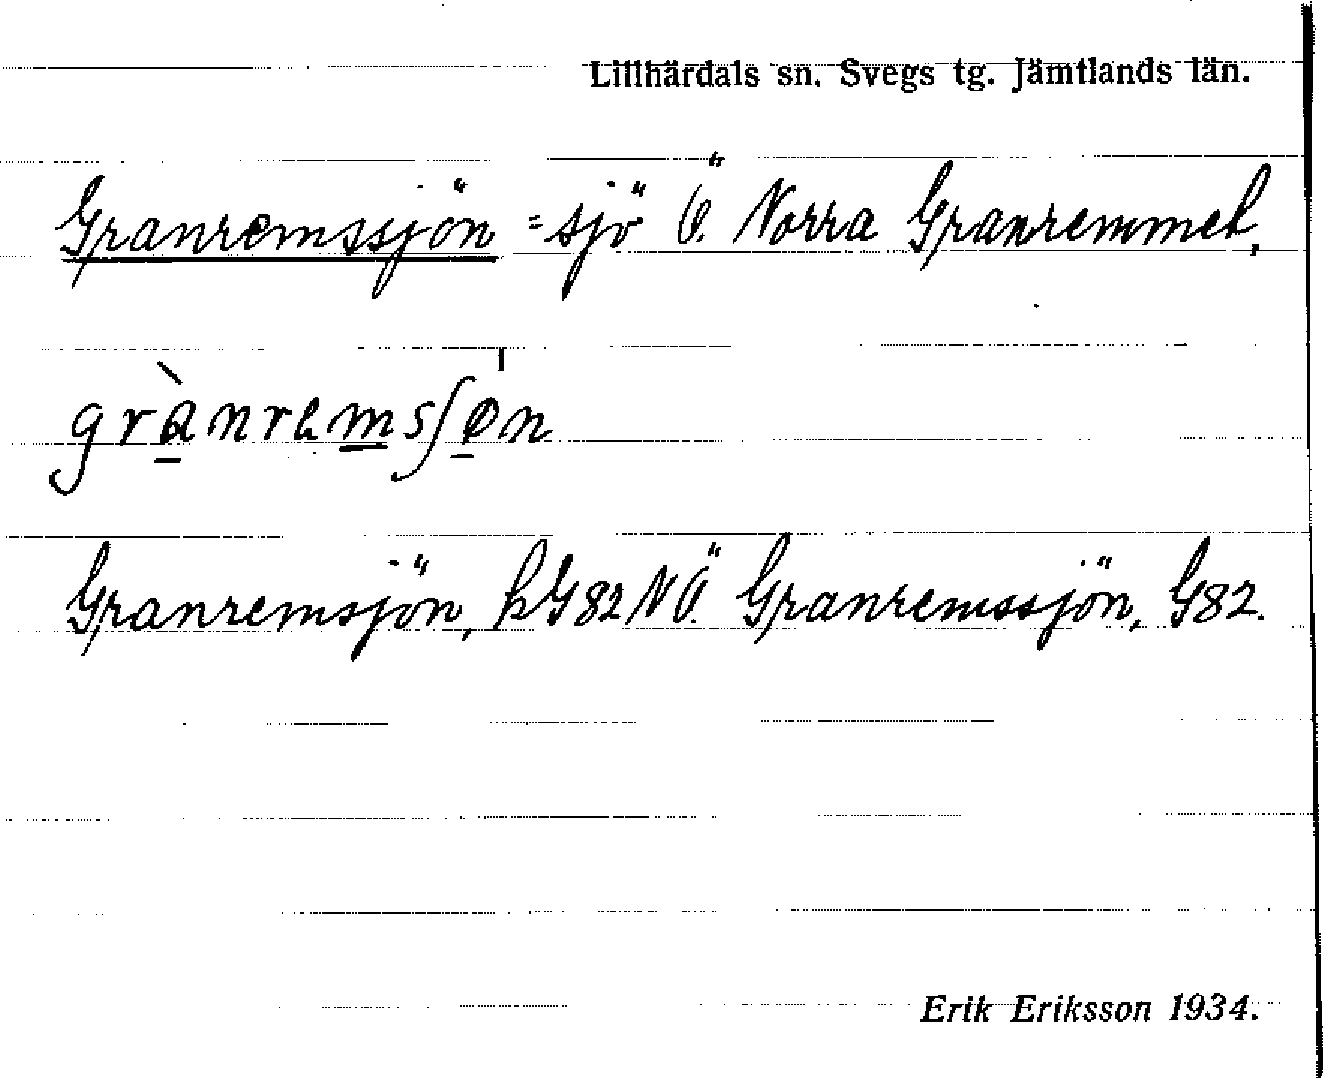 Lillhärdals sn. Svegs tg. Jämtlands län.
Granremssjön = sjö Ö. Norra Granremmet,
grànremsʃøn
Granremsjön, kG82NÖ. Granremssjön, G82.
Erik Eriksson 1934.